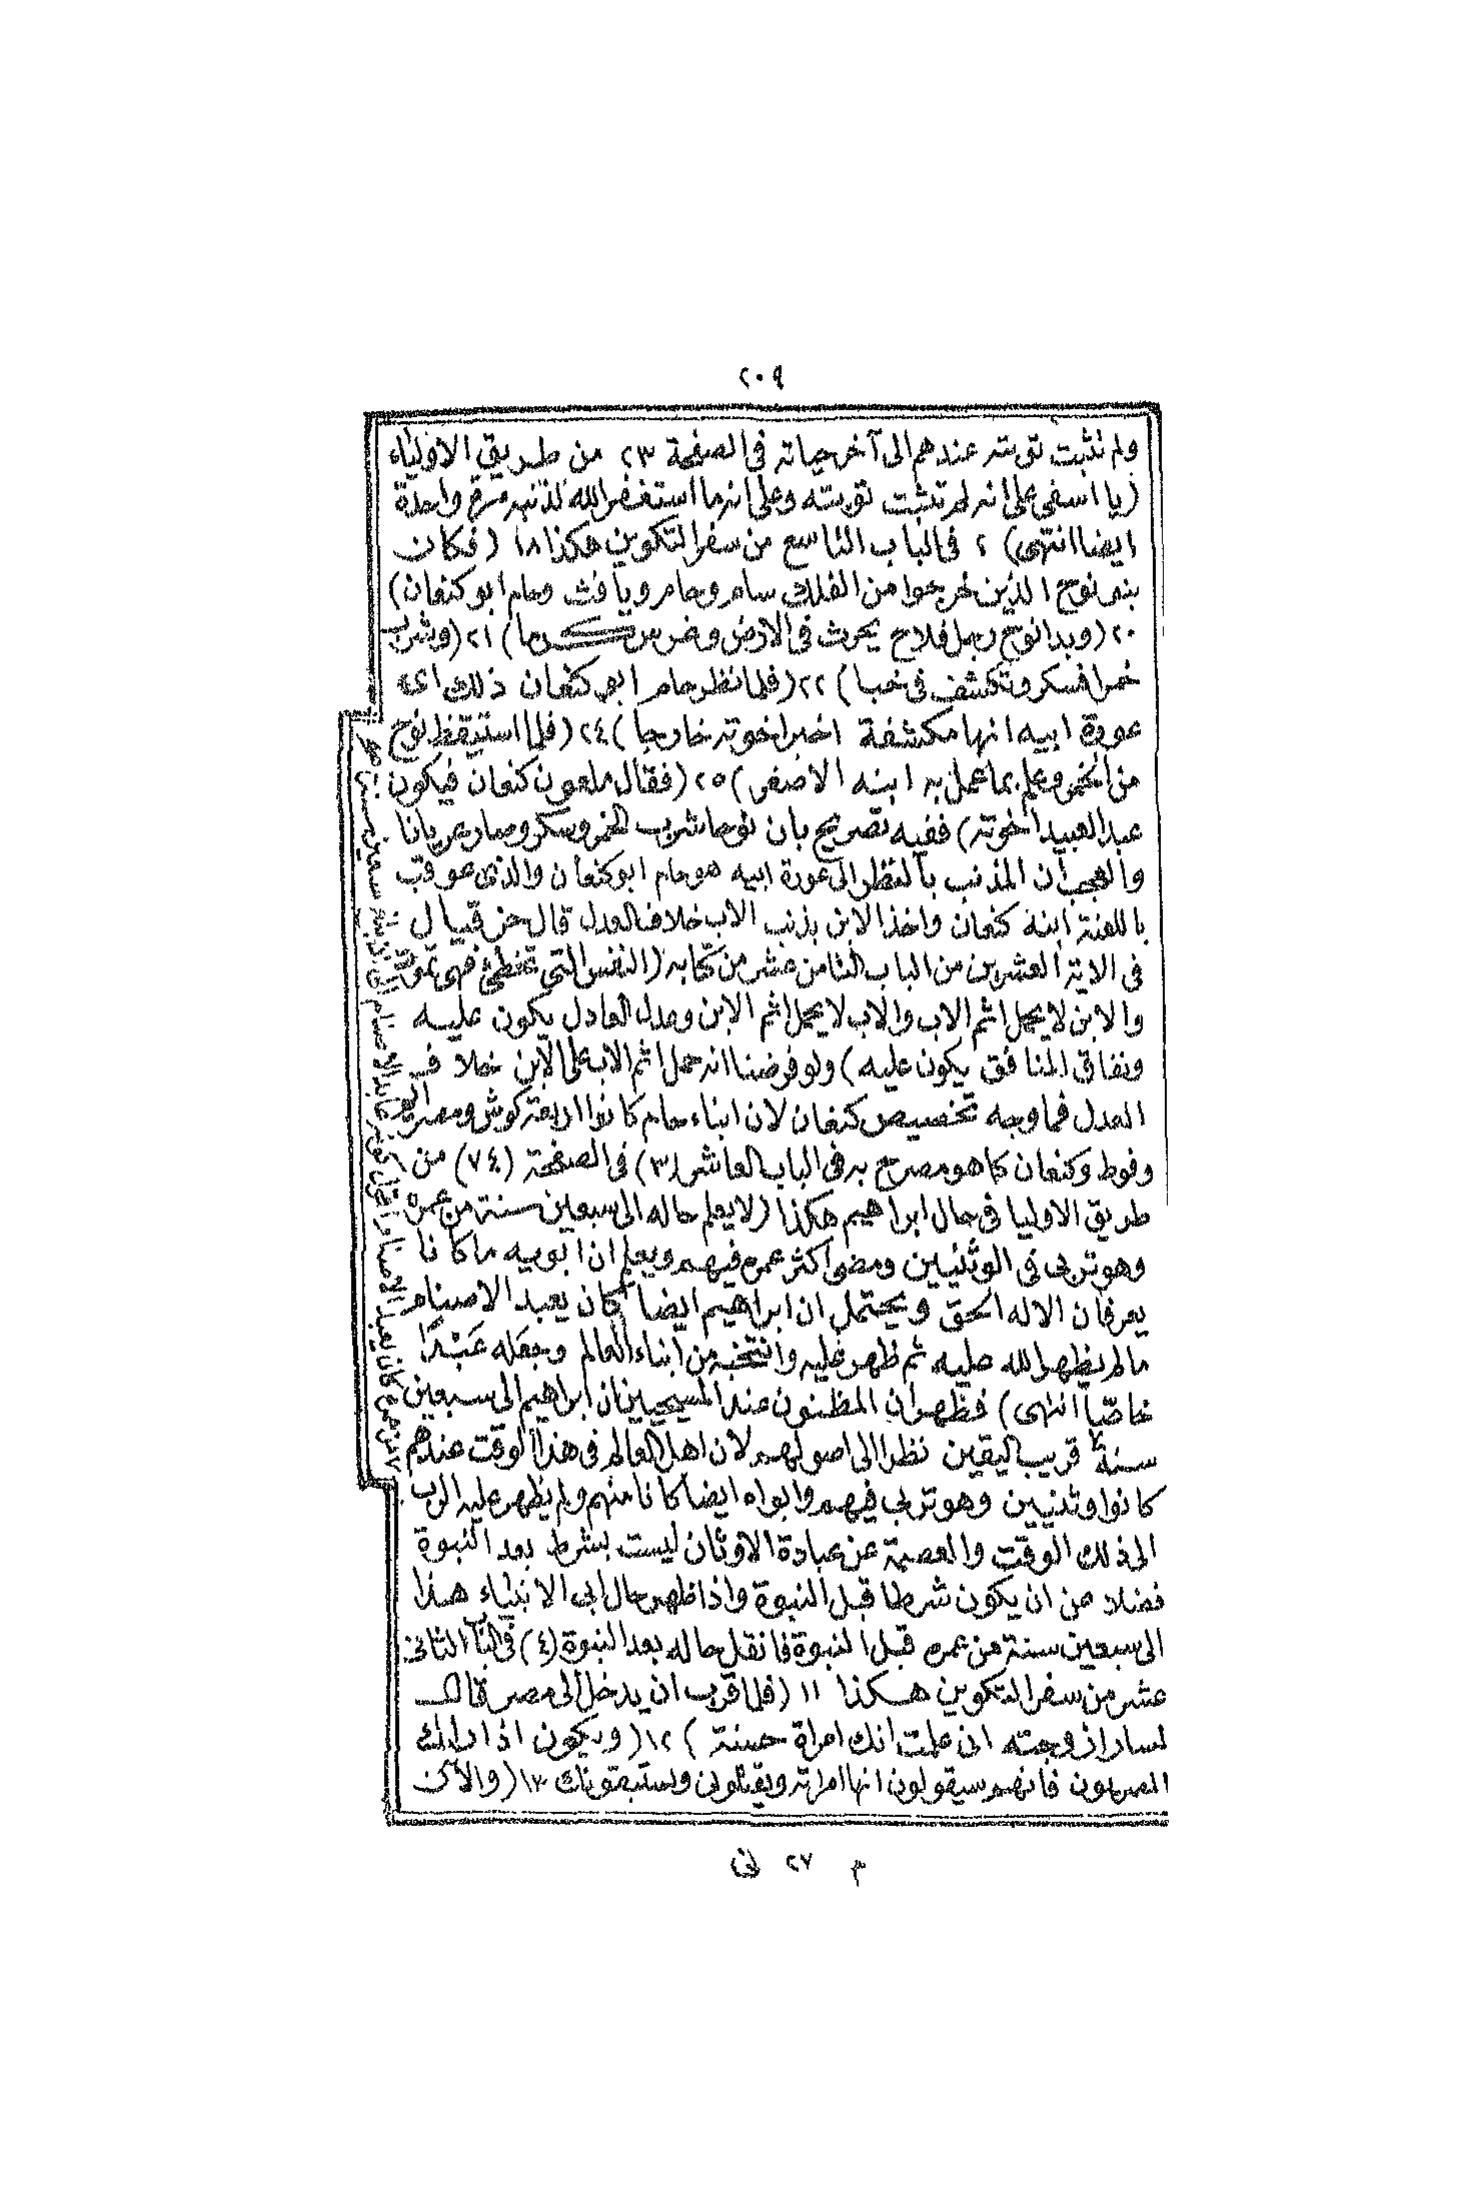 ٢٠٩
ولم تثبت توبته عندهم الى آخر حياته فى الصفحة ٢٣ من طريق الاولياء
(يا اسفى على انه لم تثبت توبته وعلى انه ما استغفر الله لذنبه مرة واحدة
ايضا انتهى) ٢ فى الباب التاسع من سفر التكوين هكذا ١٨ (فكان
بنو نوح الذين خرجوا من الفلك سام وحام ويافث وحام ابو كنعان)
٢٠ (وبدا نوح رجل فلاح يحرث فى الارض وغرس كرما) ٢١ (وشرب
خمرا فسكر وتكشف فى خبا) ٢٢ (فلما نظر حام ابو كنعان ذلك اى
عورة ابيه انها مكشفة اخبر اخوته خارجا) ٢٤ (فلما استيقظ نوح
من الخمر وعلم بما عمل به ابنه الاصغر) ٢٥ (فقال ملعون كنعان فيكون
عبدا لعبيد اخوته) ففيه تصريح بان نوحا شرب الخمر وسكر وصار عريانا
والعجب ان المذنب بالنظر الى عورة ابيه هو حام ابو كنعان والذى عوقب
باللعنة ابنه كنعان واخذ الابن بذنب الاب خلاف العدل قال حزقيال
فى الاية العشرين من الباب الثامن عشر من كتابه (النفس التى تخطئ فهى تموت
والابن لا يحمل اثم الاب والاب لا يحمل اثم الابن وعدل العادل يكون عليه
ونفاق المنافق يكون عليه) ولو فرضنا انه حمل اثم الاب على الابن خلاف
العدل فما وجه تخصيص كنعان لان ابناء حام كانوا اربعة كوش ومصرايم
وفوط وكنعان كما هو مصرح به فى الباب العاشر (٣) فى الصفحة (٧٤) من
طريق الاوليا فى حال ابراهيم هكذا (لا يعلم حاله الى سبعين سنة من عمره
وهو تربى فى الوثنيين ومضى اكثر عمره فيهم ويعلم ان ابويه ما كانا
يعرفان الاله الحق ويحتمل ان ابراهيم ايضا كان يعبد الاصنام
ما لم يظهر الله عليه ثم ظهر عليه وانتخبه من ابناء العالم وجعله عَبْدًا
خاصّا انتهى) فظهر ان المظنون عند المسيحيين ان ابراهيم الى سبعين
سنة قريب اليقين نظرا الى اصولهم لان اهل العالم فى هذا الوقت عندهم
كانوا وثنيين وهو تربى فيهم وابواه ايضا كانا منهم ولم يظهر عليه الرب
الى ذلك الوقت والعصمة عن عبادة الاوثان ليست بشرط بعد النبوة
فضلا عن ان يكون شرطا قبل النبوة واذا ظهر حال ابى الانبياء هذا
الى سبعين سنة من عمره قبل النبوة فانقل حاله بعد النبوة (٤) فى البا الثانى
عشر من سفر التكوين هكذا ١١ (فلما قرب ان يدخل الى مصر قال
لسارا زوجته انى علمت انك امراة حسنة) ١٢ (ويكون اذا راك
المصريون فانهم سيقولون انها امراته ويقتلونى ويستبقونك ١٣ (والآن
م ٢٧ نى